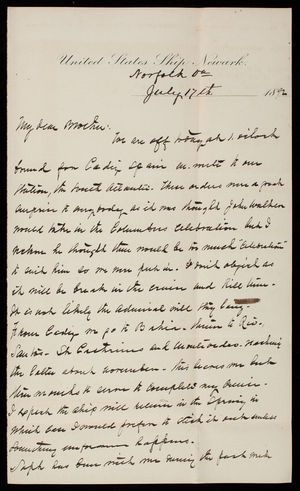 United States Ship Newark.
Norfolk Va
July 17th 1892
My dear Brother:
We are off today at 1. o'clock
bound for Cadiz Spain en route to our
Station, the South Atlantic. These orders were a great
surprise to everybody as it was thought John Walker
would take in the Columbus Celebration but I
he thought there would be too much Celebration
to suit him so we were put in. I don't object as
it will be a break in the cruise and kill time.
It is not likely the Admiral will stay long.
From Cadiz we go to Bahia. Thence to Rio.
Santos. St Catherine and Montevideo. reaching
the latter about November. This leaves me but
three months to serve to complete my cruise.
I expect the ship will return in the Spring in
which case I would prefer to stick it out unless
something happens.
Soph has been with me during the past week